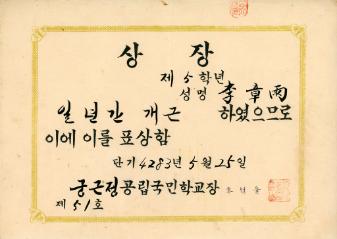 상 장
제 5 학년
성명 李章雨
일 년간 개근 하였으므로
이에 이를 표상함
단기 4283년 5월 25일
궁근정공립국민학교장
제 51 호